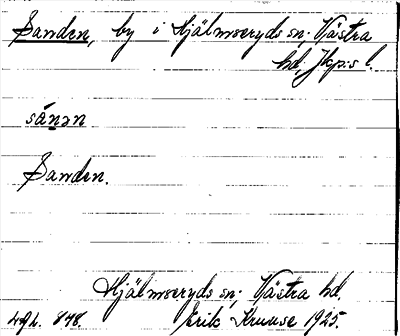 Sanden, by i Hjälmseryds sn; Västra
hd. Jkp:s l.
sánən
Sanden.
Hjälmseryds sn; Västra hd.
Erik Kruuse 1925.